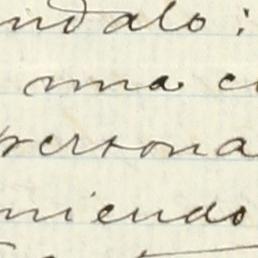 ndalo:
una c
persona
niendo